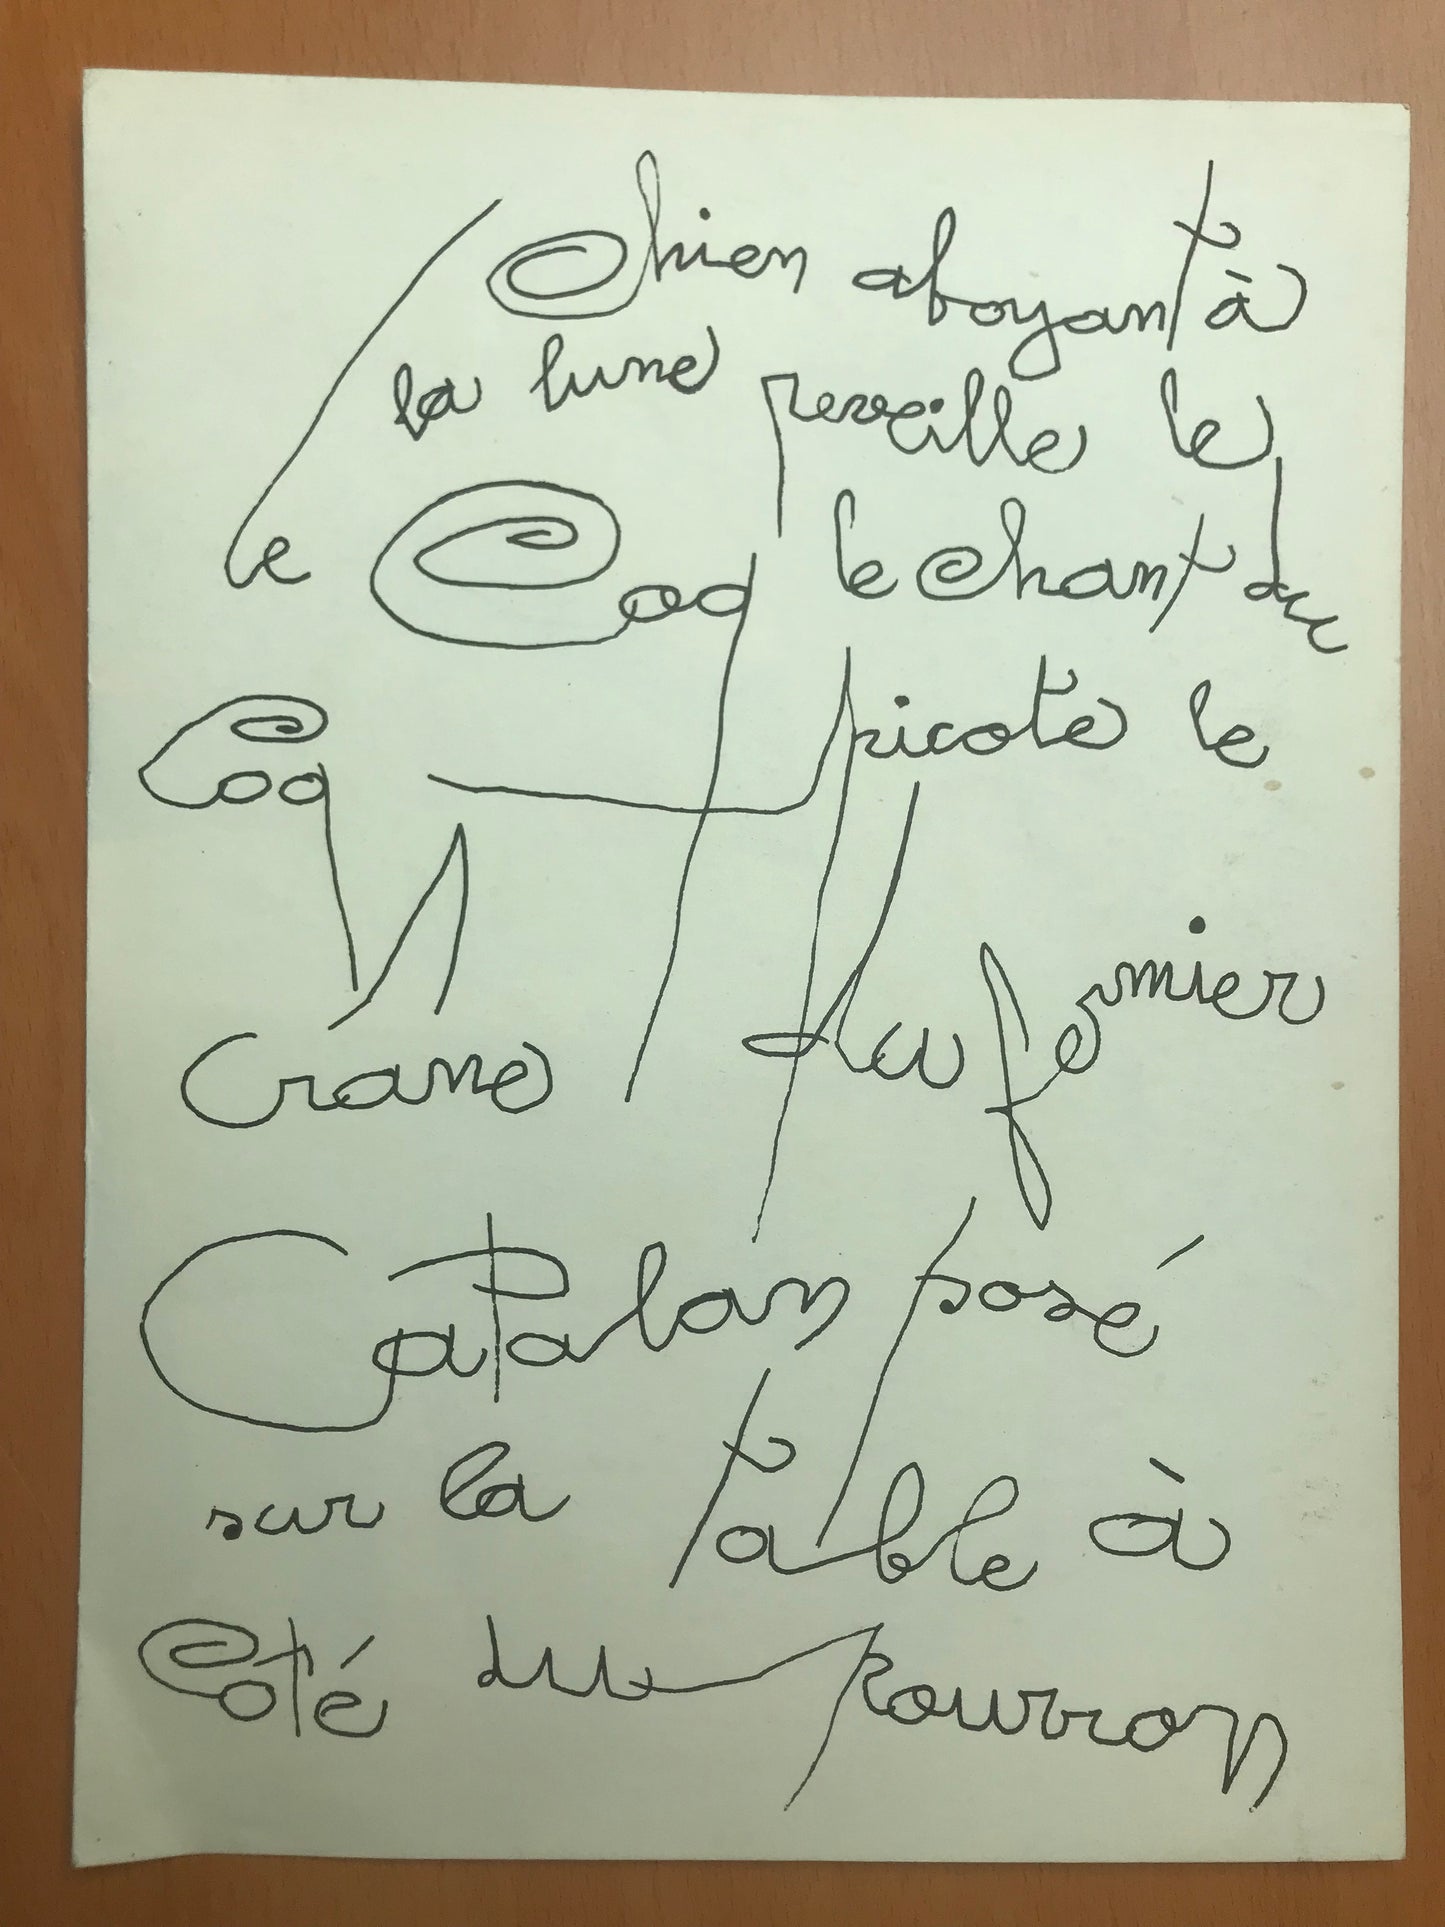 Chien aboyant à
la lune reveille le
le Coq le chant du
Coq picote le
crane du fermier
Catalan posé
sur la table à
Coté du pourron